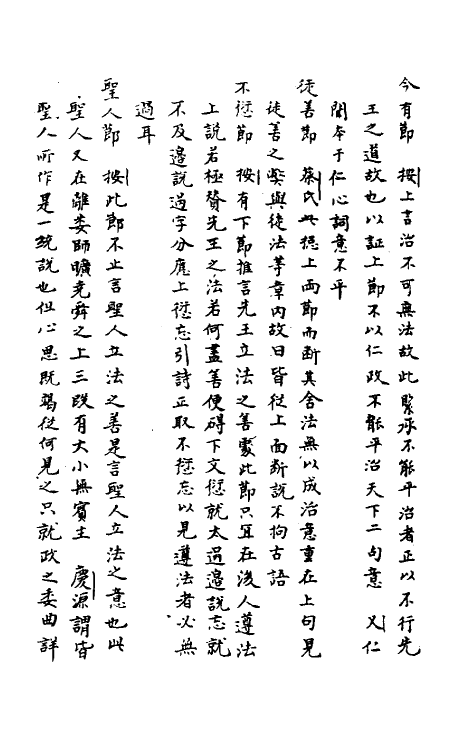 今有節　按上言治不可無法故此緊承不能平治者正以不行先
王之道故也以証上節不以仁政不能平治天下二句意　又仁
聞本于仁心詞意不平
徒善節　蔡氏此徳上両節而斷其舍法無以成治意重在上句見
徒善之與徒法等章内故曰皆從上面斷説不拘古語
不愆節　按有下節推言先王立法之善處此節只宜在後人遵法
上説若極贊先王之法若何盡善便碍下文愆就太過邉説忘就
不及邉説過字分應上愆忘引詩正取不愆忘以見遵法者必無
過耳
聖人節　按此節不止言聖人立法之善是言聖人立法之意也此
聖人又在離婁師曠堯舜之上三段有大小無賓主　慶源謂皆
聖人所作是一統説也但心思既竭從何見之只就政之委曲詳